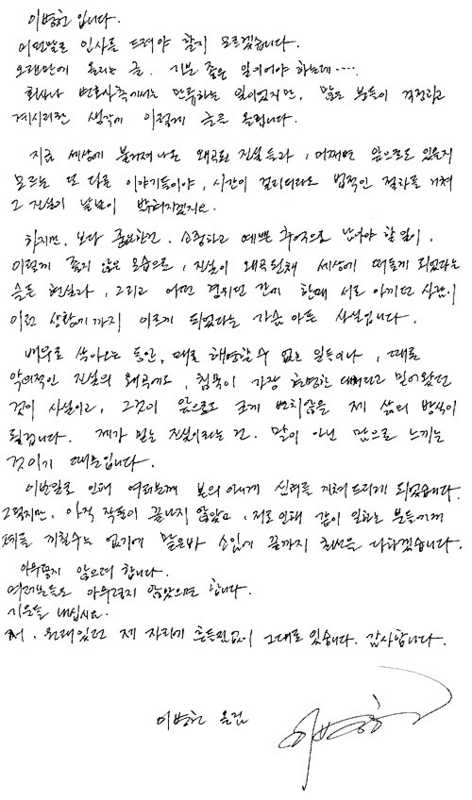 이병헌입니다.
어떤말로 인사를 드려야 할지 모르겠습니다.
오랜만에 올리는 글. 기분 좋은 일이어야 하는데....
회사나 변호사측에서는 만류하는 일이었지만, 많은 분들이 걱정하고
계시리란 생각에 이렇게 글을 올립니다.
지금 세상에 불거져 나온 왜곡된 진실들과, 어쩌면 앞으로도 있을지
모르는 또 다른 이야기들이야, 시간이 걸리더라도 법적인 절차를 거쳐
그 진실이 낱낱이 밝혀지겠지요.
하지만, 보다 중요한건, 소중하고 예쁜 추억으로 남아야 할 일이,
이렇게 좋지 않은 모습으로, 진실이 왜곡된채 세상에 떠들게 되었다는
슬픈 현실과, 그리고 어떤 경위던 간에 한때 서로 아끼던 사람이
이런 상황에까지 이르게 되었다는 가슴 아픈 사실입니다.
배우로 살아오는 동안, 때로 해명할 수 없는 일들이나, 때론
악의적인 진실의 왜곡에도, 침묵이 가장 현명한 대처라고 믿어왔던
것이 사실이고, 그것이 앞으로도 크게 변치않을 제 삶의 방식이
될겁니다. 제가 믿는 진실이라는 건. 말이 아닌 맘으로 느끼는
것이기 때문입니다.
이번일로 인해 여러분께 본의 아니게 심려를 끼쳐 드리게 되었습니다.
그렇지만, 아직 작품이 끝나지 않았고, 저로 인해 같이 일하는 분들에게
폐를 끼칠수는 없기에 맡은바 소임에 끝까지 최선을 다하겠습니다.
아무렇지 않으려 합니다.
여러분들도 아무렇지 않았으면 합니다.
기운들 내십시요.
저. 원래있던 제 자리에 흔들림없이 그대로 있습니다. 감사합니다.
이병헌 올림